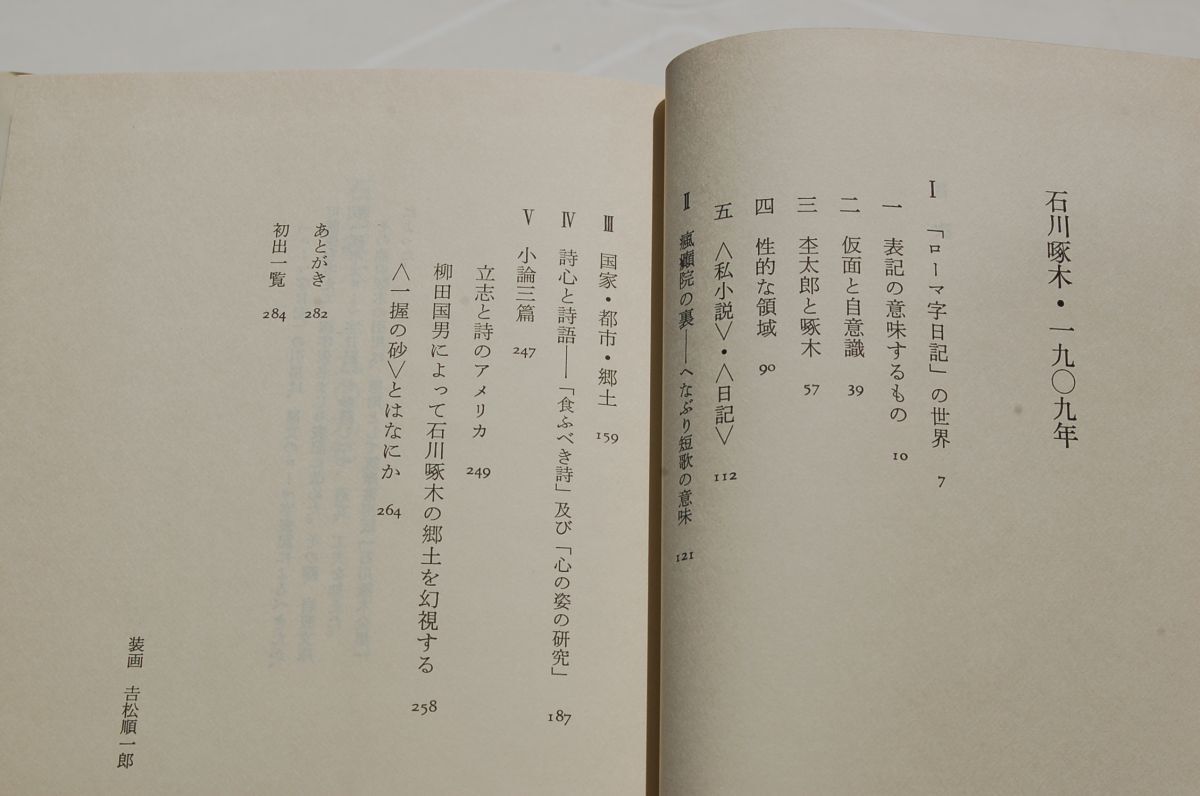 石川啄木・一九〇九年
Ⅰ 「ローマ字日記」の世界 7
一 表記の意味するもの 10
二 仮面と自意識 39
三 杢太郎と啄木 57
四 性的な領域 90
五 〈私小説〉・〈日記〉 112
Ⅱ 瘋癲院の裏――へなぶり短歌の意味 121
Ⅲ 国家・都市・郷土 159
Ⅳ 詩心と詩語――「食ふべき詩」及び「心の姿の研究」 187
Ⅴ 小論三篇 247
立志と詩のアメリカ 249
柳田国男によって石川啄木の郷土を幻視する 258
〈一握の砂〉とはなにか 264
あとがき 282
初出一覧 284
装画 吉松順一郎